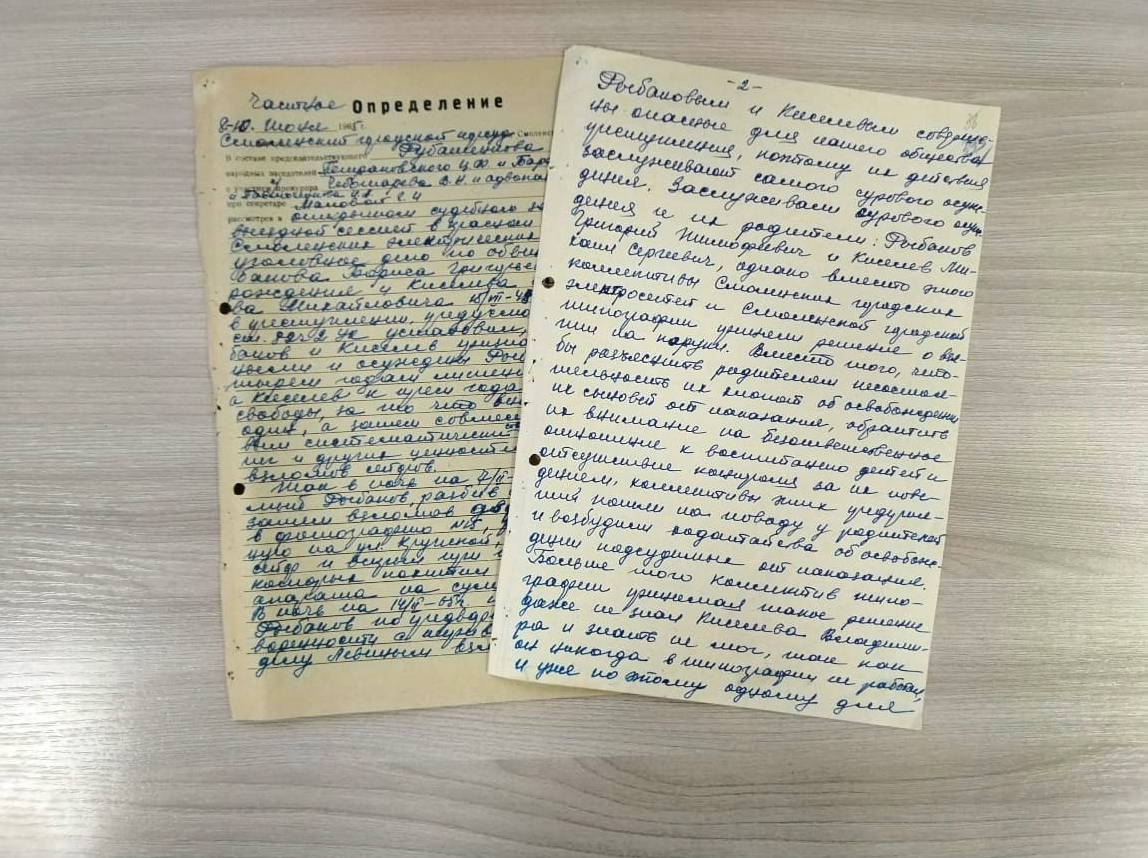 Частное Определение
8-10 июня 1965 г.
Смоленский городской нарсуд Смоленск
В составе председательствующего
народных заседателей Ц.Ф. и
с участием прокурора Чебомарева В.Н. и адвока
и
при секретаре Маловой
рассмотрев в открытом судебном за
выездной сессией в красном
Смоленских электрических
уголовное дело по обви
банова Бориса Григорье
рождения и Киселева
ва Михайловича 15/III-48
в преступлении, предусмо
ст. 89 ч 2 УК установил,
банов и Киселев призна
ными и осуждены Рыб
тырем годам лишени
а Киселев к трем года
свободы, за то что
один, а затем совмест
вым систематически
нег и других ценносте
взломов сейфов.
Так в ночь на
Рыбанов, разбив
затем взломав
в фотографию №
ную на ул. Крупской,
сейф и взяли
которых похитил
аппарата на сумм
В ночь на 14/II-65г.
Рыбанов по предвар
воренности с
делу Левиным взл
-2-
Рыбановым и Киселевым соверше-
ны опасные для нашего общества
преступления, поэтому их действия
заслуживают самого сурового осуж-
дения. Заслуживали сурового осуж-
дения и их родители: Рыбанов
Григорий Тимофеевич и Киселев Ми-
хаил Сергеевич, однако вместо этого
коллективы Смоленских городских
электросетей и Смоленской городской
типографии приняли решение о взя-
тии на поруки. Вместо того, что-
бы разъяснить родителям несостоя-
тельность их хлопот об освобождении
их сыновей от наказания, обратить
их внимание на безответственное
отношение к воспитанию детей и
отсутствие контроля за их пове-
дением, коллективы этих учрежде-
ний пошли на поводу у родителей
и возбудили ходатайства об освобож-
дении подсудимых от наказания.
Больше того коллектив типо-
графии принимая такое решение
даже не знал Киселева Владими-
ра и знать не мог, так как
он никогда в типографии не работал,
и уже по этому одному для